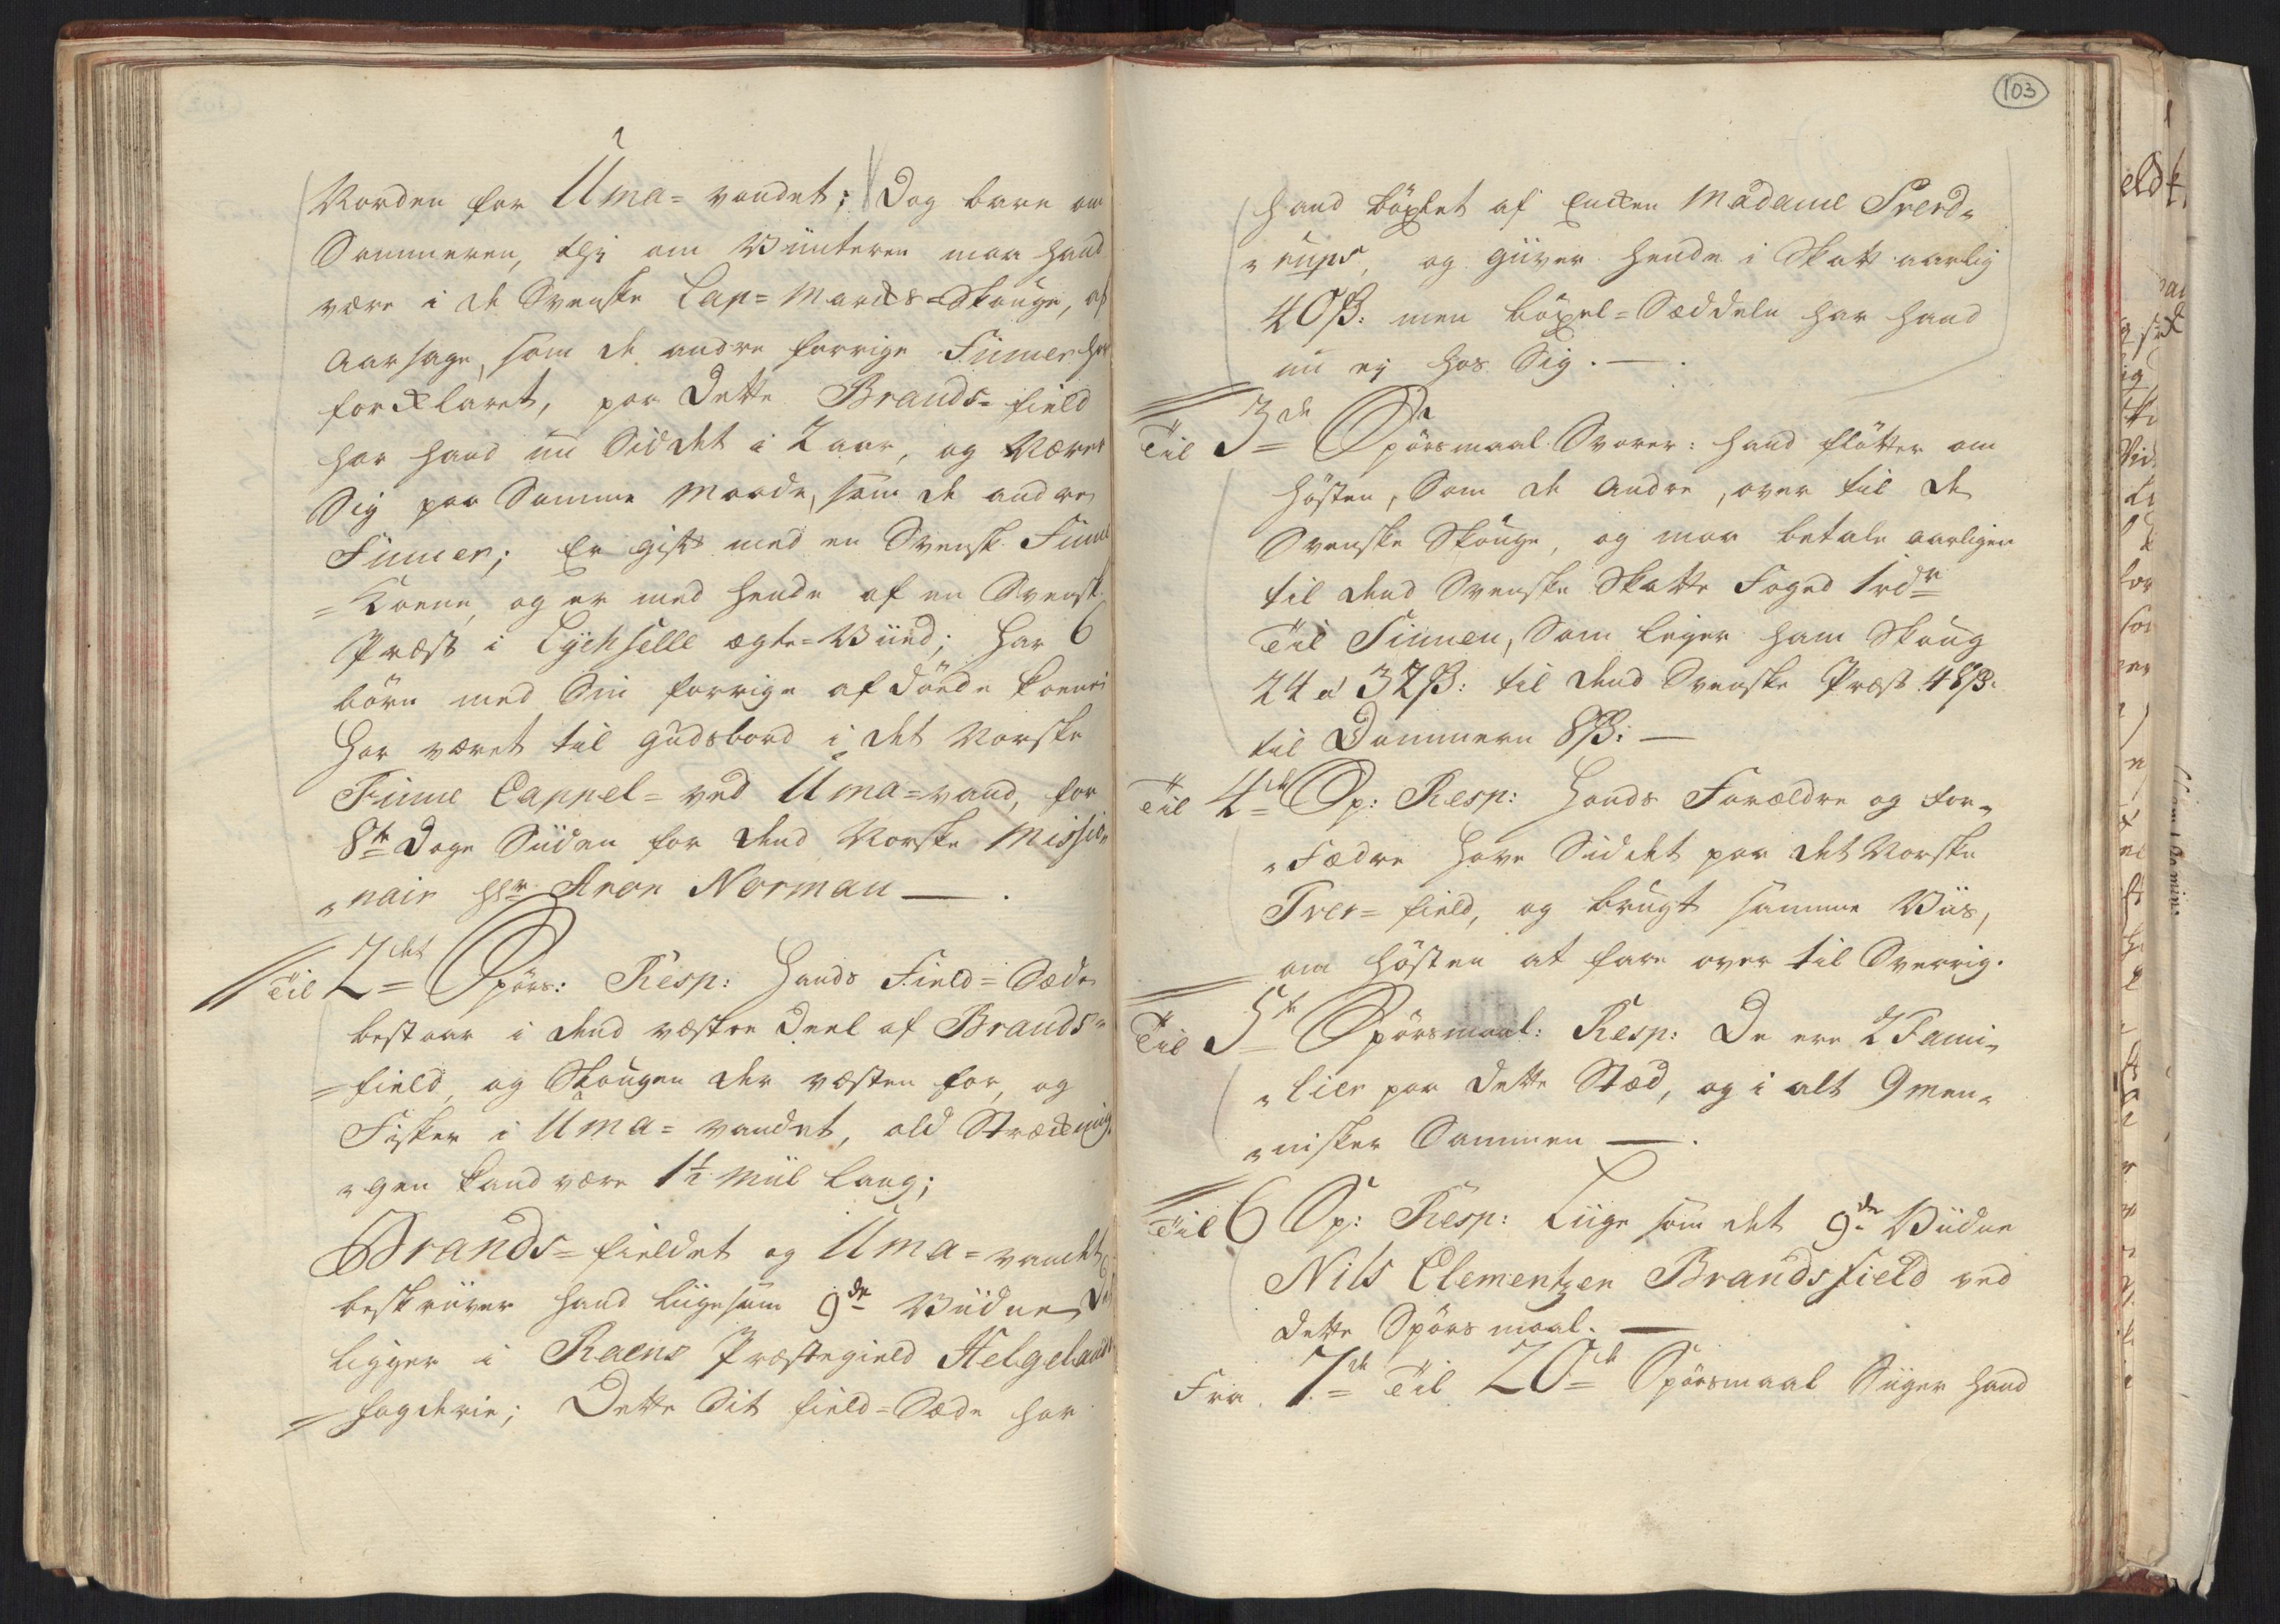 103
Norden for Uma= vandet; Dog bare om
Sommeren, thi om Vinteren maa hand
være i de Svenske Lap=Marks=Skouge, af
Aarsage, som de andre forrige Finner har
forklaret, paa dette Brands= field
har hand nu Siddet i 2 aar, og Næret
Sig paa Samme Maade, som de andre
Finner; Er gift med en Svensk Finne
=Koene, og er med hende af en Svensk
Præst i Lychselle ægte=Viied; har 6
børn med Sin forrige afdøede Koene;
har været til Gudsbord i det Norske
Finne Cappel= ved Uma=vand, for
8te Dage Siden for dend Norske Missio„
„nair Hr Aron Norman — .
Til 2det Spørs: Resp: Hands Field=Sæde
bestaar i dend væstre Deel af Brands„
=field, og Skougen der væsten for, og
Fisker i Uma= vandet, ald Strækning„
„gen kand være 1½ Miil lang;
Brands=fieldet og Uma=vandet
beskriiver hand liigesom 9de Viidne, Det
ligger i Raens Præstegield Helgelands
=fogderie; Dette Sit field=Sæde har
hand böxlet af Encken Madame Sverd„
„rups, og giiver hende i Skatt aarlig
40 ß: men böxel=Sæddelen har hand
nu ej hos Sig. — .
Til 3de Spörsmaal Svarer: hand fløtter om
høsten, Som de Andre, over til de
Svenske Skouge, og maa betale aarligen
til dend Svenske Skatte Foged 1 rdr
Til Finnen, Som leyer ham Skoug
24 a 32 ß: til dend Svenske Præst 48 ß:
til Dommeren 8 ß: —
Til 4de Sp: Resp: Hands Forældre og For„
„Fædre have Siddet paa det Norske
Tver= field, og brugt samme Viis,
om høsten at fare over til Sverrig.
Til 5te Spörsmaal: Resp: De ere 2 Fami„
„lier paa dette Stæd, og i alt 9 men„
„nisker Sammen — .
Til 6 Sp: Resp: Liige som det 9de Viidne
Nils Clementzen Brandsfield ved
dette Spörsmaal. —
Fra 7de Til 20de Spörsmaal Siiger hand